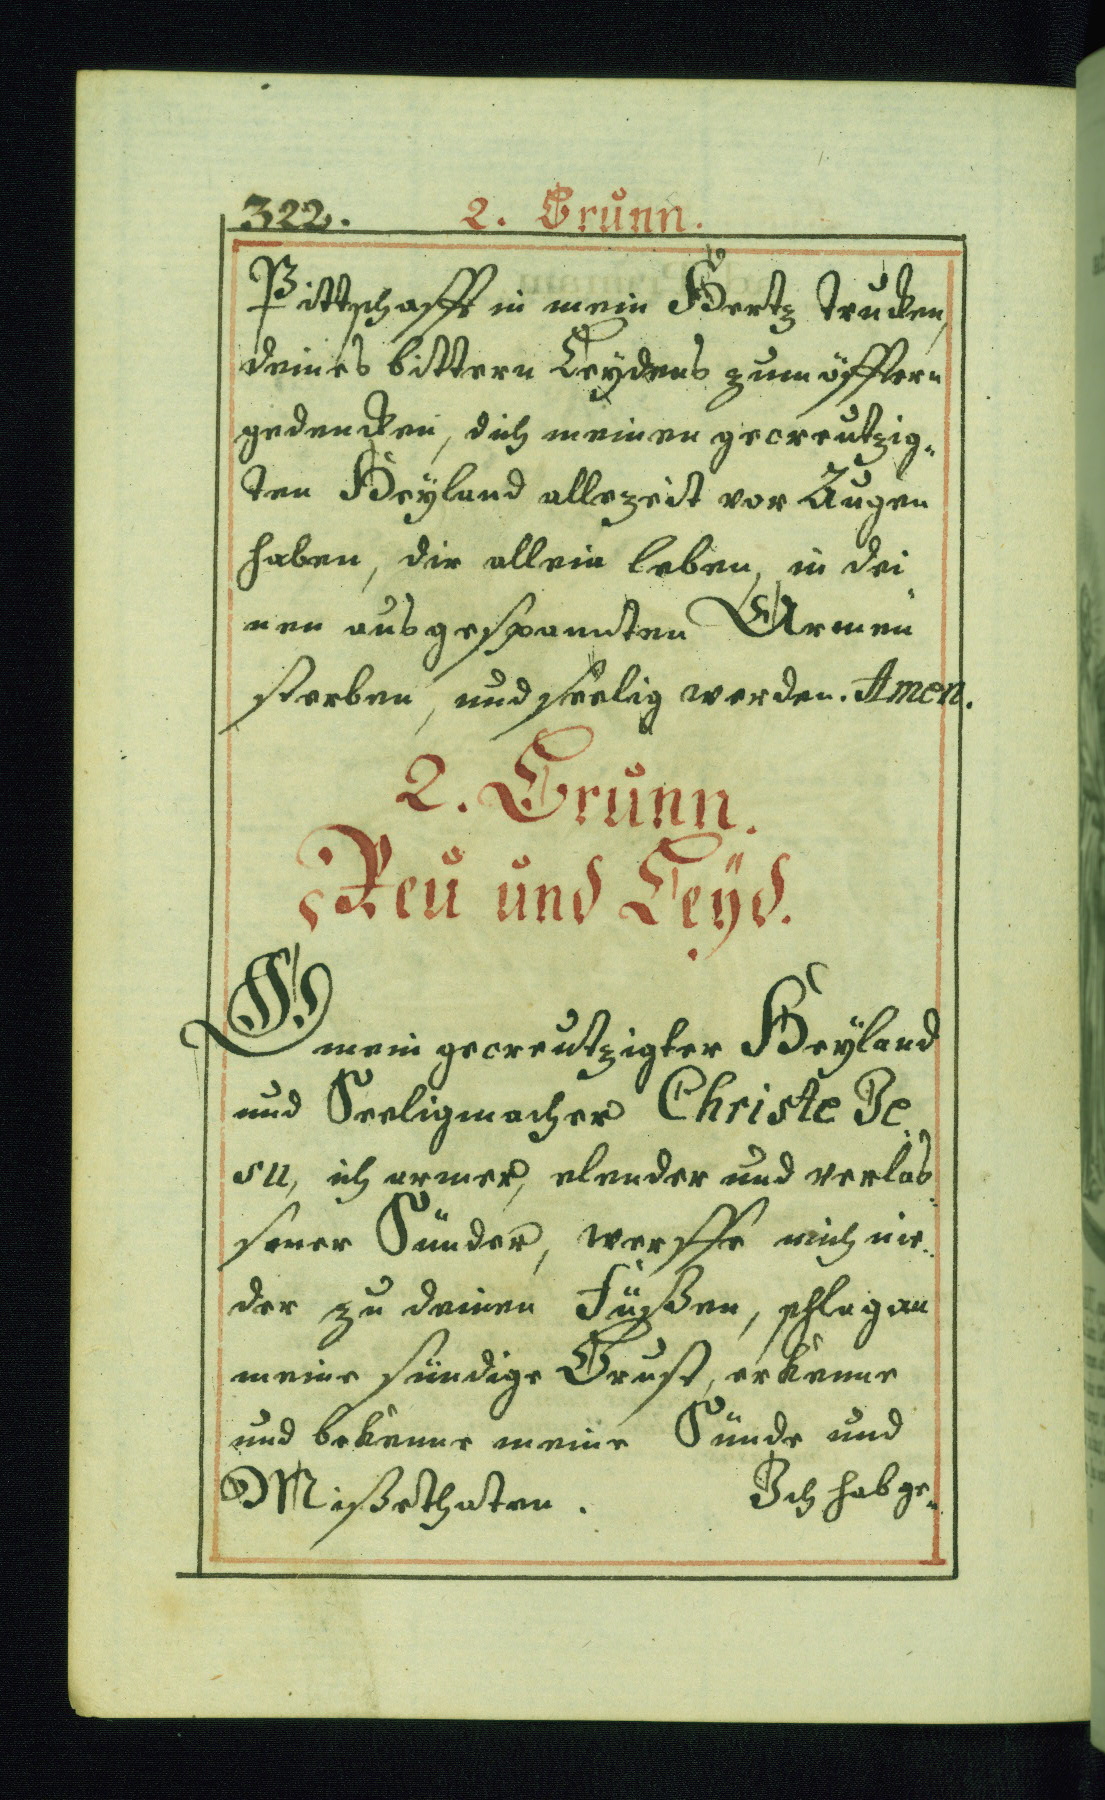 322. 2. Brunn.
Pittschafft in mein Hertz trucken,
deines bittern Leydens zum öfftern
gedencken, dich meinen gecreutzig-
ten Heÿland allezeit vor Augen
haben, dir allein leben, in dei
nen ausgespannten Armen
sterben, und seelig werden. Amen.
2. Brunn.
Reu und Leÿd.
O mein gecreutzigter Heÿland
und Seeligmacher Christe Je
su, ich armer, elender und verlas
sener Sünder, werffe mich nie-
der zu deinen Füßen, schlag an
meine sündige Brust, erkenne
und bekenne meine Sünde und
Mißethaten. Ich hab ge-